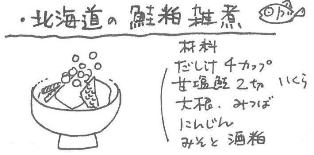 ・北海道の鮭粕雑煮
材料
だし汁 4カップ
甘塩鮭 2切 いくら
大根. みつば
にんじん
みそと酒粕